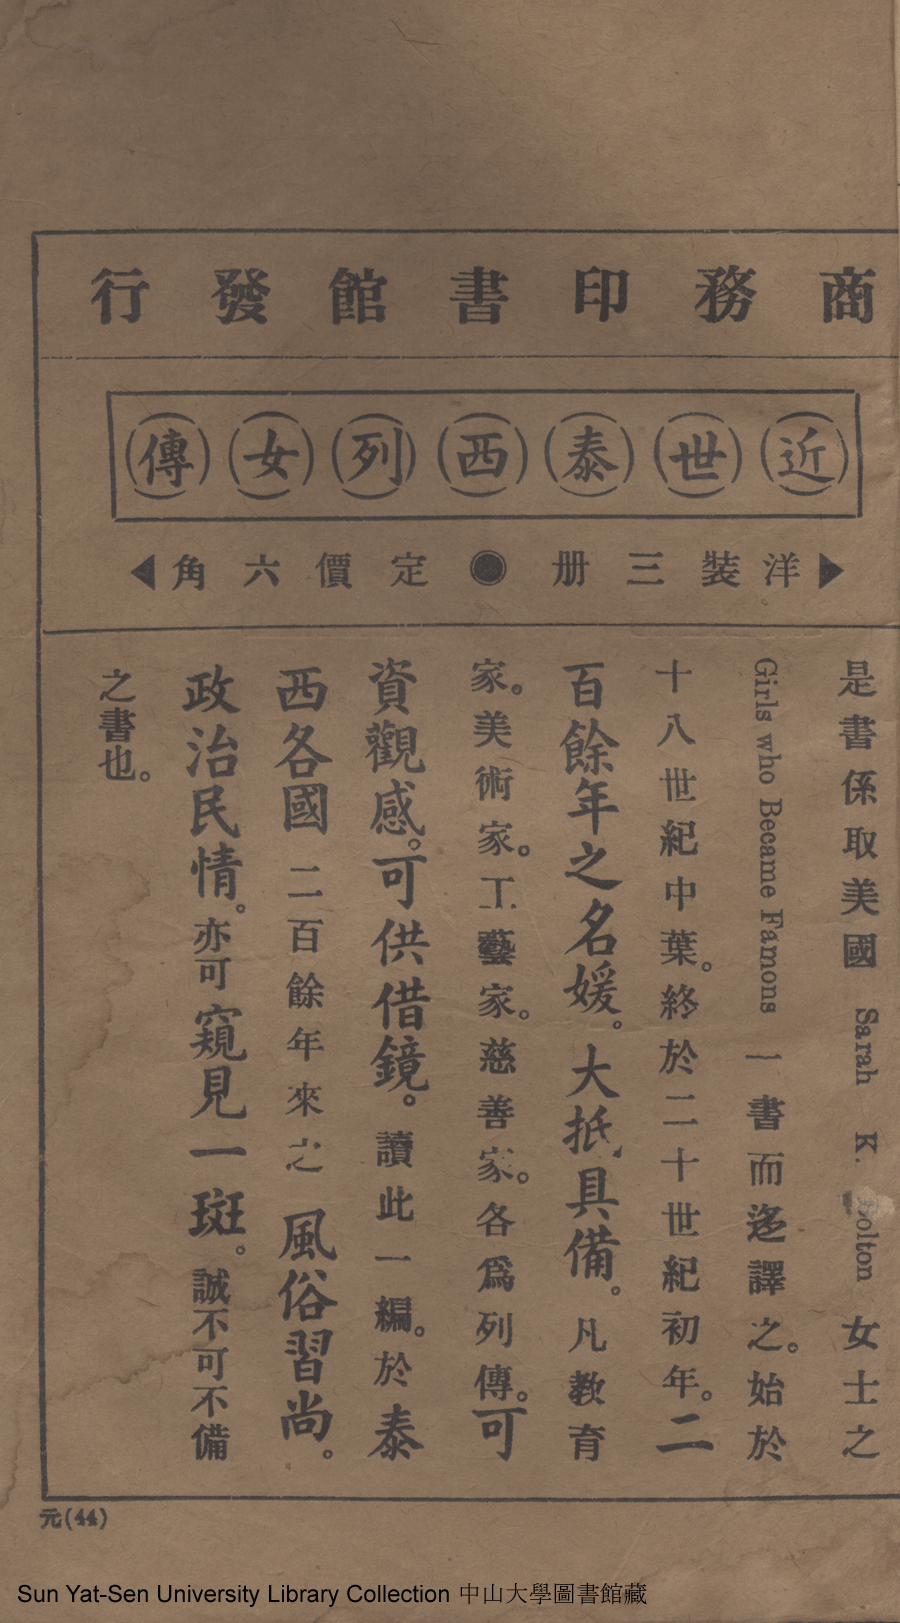 商務印書館發行
近世泰西列女傳
洋裝三册●定價六角
是書係取美國 Sarah K. olton 女士之
Girls who Became Famons 一書而迻譯之。始於
十八世紀中葉。終於二十世紀初年。二
百餘年之名媛。大抵具備。凡教育
家。美術家。工藝家。慈善家。各爲列傳。可
資觀感。可供借鏡。讀此一編。於泰
西各國二百餘年來之風俗習尚。
政治民情。亦可窺見一斑。誠不可不備
之書也。
元(44)
Sun Yat-Sen University Library Collection 中山大學圖書館藏